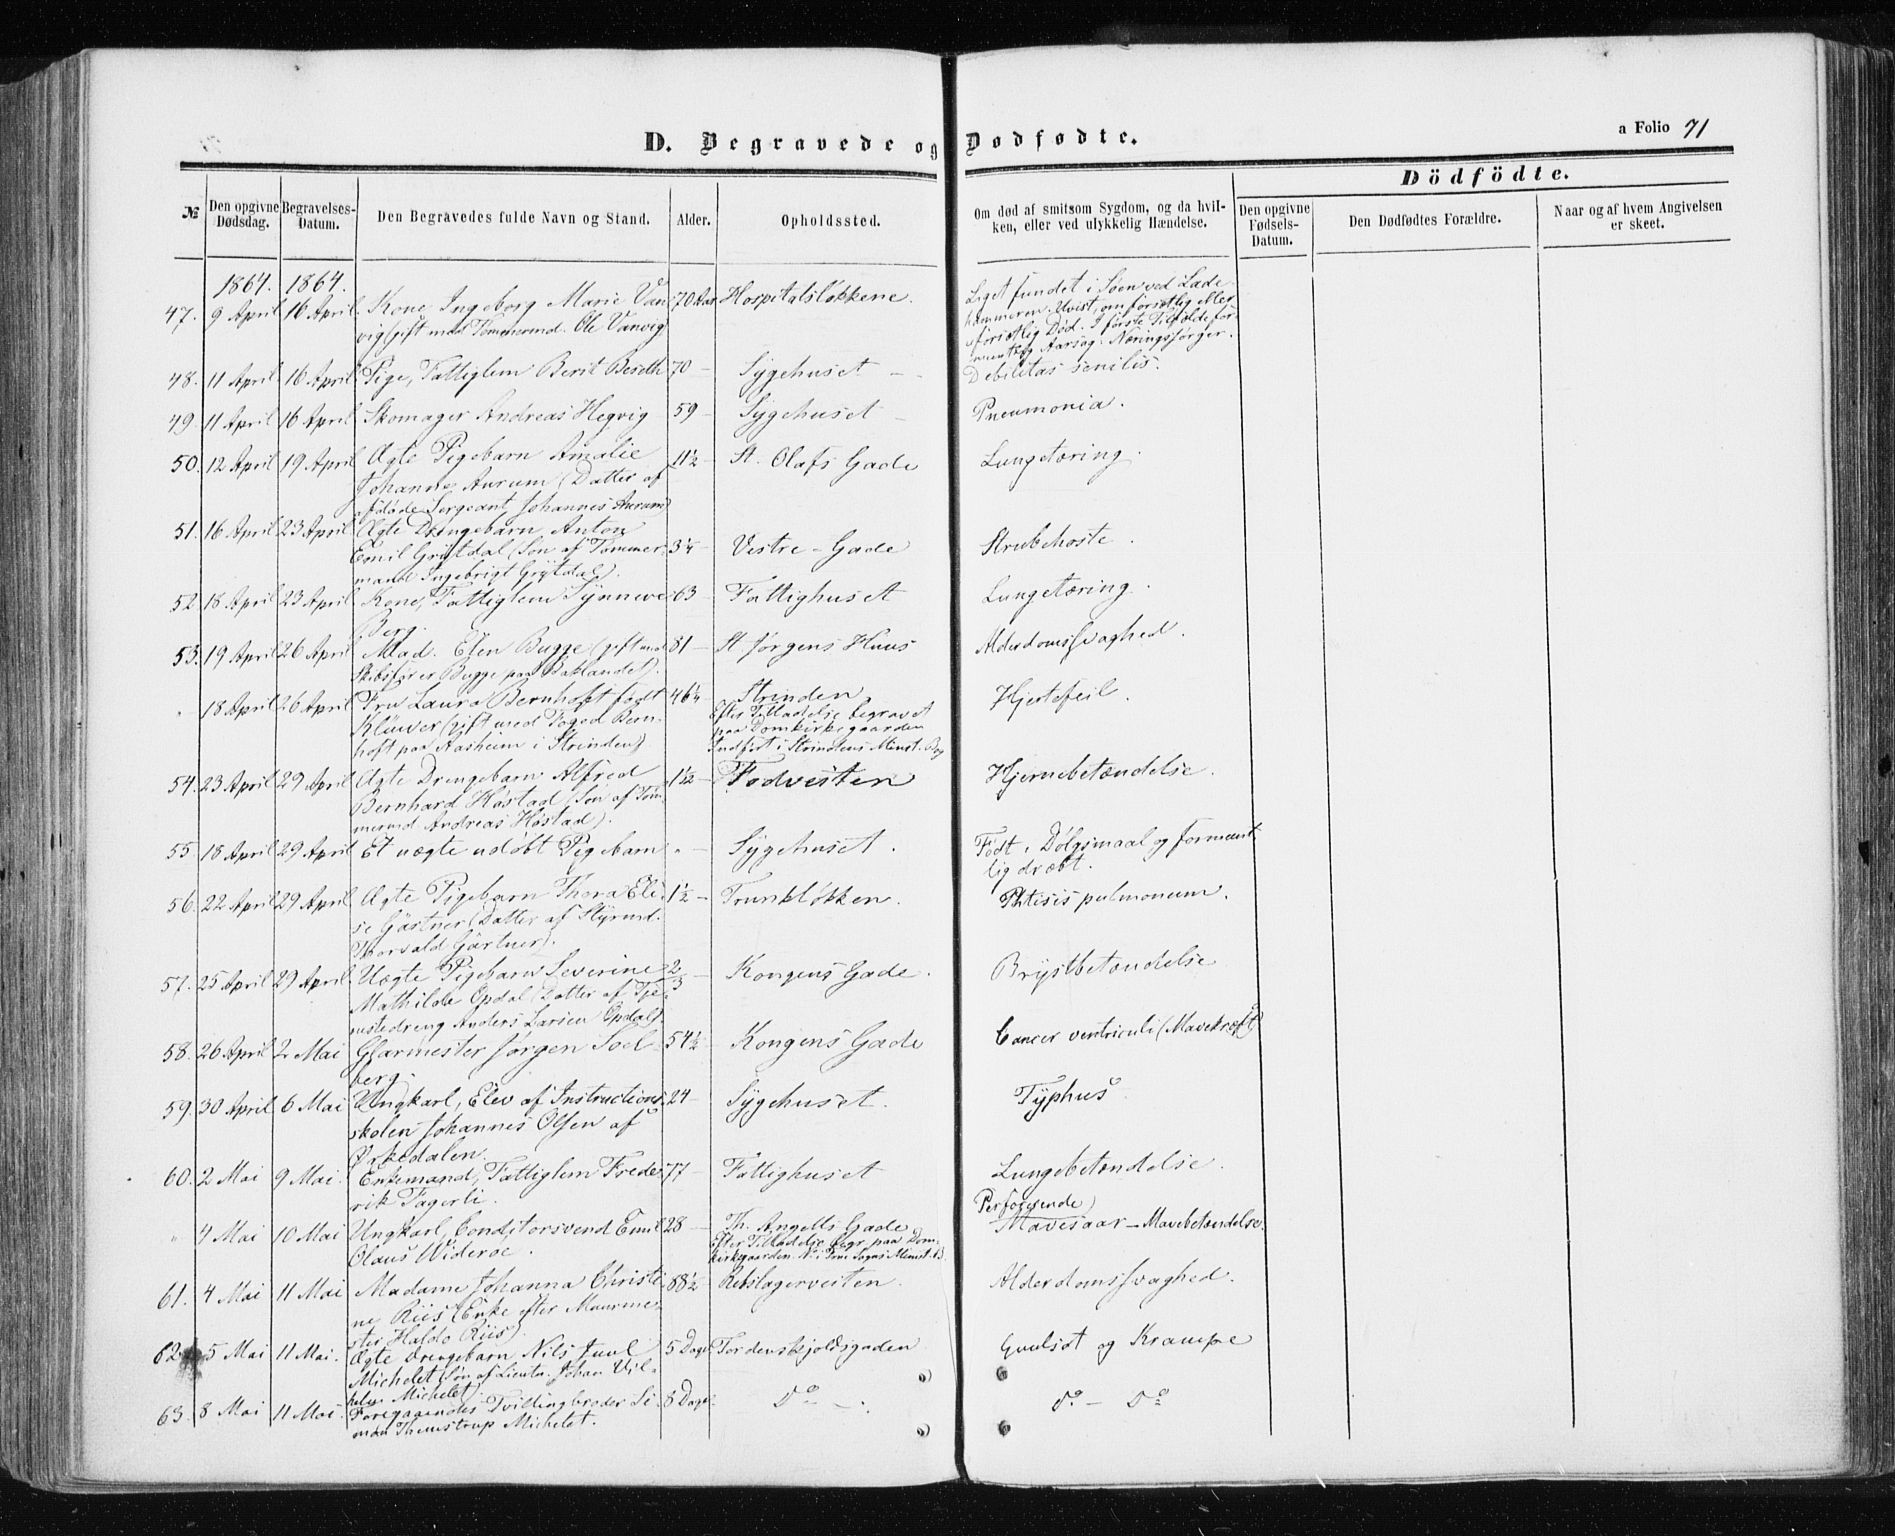 D. Begravede og Dødfødte.
a Folio 71
№
Den opgivne Dødsdag.
Begravelses-Datum.
Den Begravedes fulde Navn og Stand.
Alder.
Opholdssted.
Om død af smitsom Sygdom, og da hvilken, eller ved ulykkelig Hændelse.
Dödfödte.
Den opgivne Fødsels-Datum.
Den Dødfødtes Forældre.
Naar og af hvem Angivelsen er skeet.
1864. 1864.
47. 9 April 16 April Kone Ingeborg Marie Van 70 Aar Hospitalsløkkene. Liget fundet i Søen ved Lade-
vig (gift med Tømmermd. Ole Vanvig hammeren. Uvist, om forsætlig eller
uforsætlig Død. I første Tilfælde for-
mentlig Aarsag: Næringssorger.
48. 11 April 16 April Pige, Fattiglem Berit Beseth 70 — Sygehuset — Debilitas senilis.
49. 11 April 16 April Skomager Andreas Hegvig 59 — Sygehuset — Pneumonia.
50. 12 April 19 April Ægte Pigebarn Amalie 11½ — St. Olafs Gade Lungetæring.
Johanne Aurum (Datter af
afdøde Sergeant Johannes Aurum)
51. 16 April 23 April Ægte Drengebarn Anton
Emil Grytdal (Søn af Tømmer- 3¼ — Vestre-Gade Strubehoste.
mand Ingebrigt Grytdal).
52. 18 April 23 April Kone, Fattiglem Synneve 63 — Fattighuset Lungetæring.
Berg.
53. 19 April 26 April Mad. Elen Bugge (gift med 81 — St. Jørgens Huus Alderdomssvaghed.
Skibsfører Bugge paa Baklandet).
" 18 April 26 April Fru Laura Bernhoft født 46¼ Strinden Hjertefeil.
Klüwer (gift med Foged Bern- Efter Tilladelse begravet
hoft paa Aasheim i Strinden) paa Domkirkegaarden
Indført i Strindens Minist. Bog
54. 23 April 29 April Ægte Drengebarn Alfred 1½ — Fodvesten Hjernebetændelse.
Bernhard Høstad (Søn af Tøm-
mermd. Andreas Høstad).
55 18 April 29 April Et uægte udøbt Pigebarn " — Sygehuset. Født i Dølgsmaal og forment-
lig dræbt.
56. 22 April 29 April Ægte Pigebarn Thora Eli- 1½ — Trunkløkken. Phtisis pulmonum.
se Gärtner (Datter af Styrmd.
Thorvald Gärtner).
57. 25 April 29 April Uægte Pigebarn Severine 2/3 — Kongens Gade. Brystbetændelse
Mathilde Opdal (Datter af Tje-
nestedreng Anders Larsen Opdal).
58. 26 April 2 Mai Glarmester Jørgen Soel- 54½ Kongens Gade Cancer ventriculi (Mavekræft)
berg.
59. 30 April 6 Mai Ungkarl, Elev af Instructions- 24 — Sygehuset. Typhus
skolen Johannes Olsen af
Ørkedalen.
60. 2 Mai 9 Mai. Enkemand, Fattiglem Frede- 77 — Fattighuset Lungebetændelse.
rik Fagerli.
Perforerende)
" 4 Mai 10 Mai Ungkarl, Conditorsvend Emil 28 — Th. Angells Gade Mavesaar — Mavebetændelse.
Olaus Wideroe. Efter Tilladelse begr. paa Dom-
kirkegaarden. N. i Frue Sogns Minist. B.
61. 4 Mai 11 Mai Madame Johanna Christi- 88½ — Rebslagerveiten. Alderdomssvaghed.
ne Riis (Enke efter Muurme-
ster Haldo Riis).
62. 5 Mai 11 Mai. Ægte Drengebarn Nils Juul 5 Dage Tordenskjoldsgaden Guulsot og Krampe
Michelet (Søn af Lieutn. Johan Vil-
helm Michelet).
63. 8 Mai 11 Mai. Foregaaendes Tvillingbroder Si- 8 Dage. Do — Do — Do
mon Themstrup Michelet.